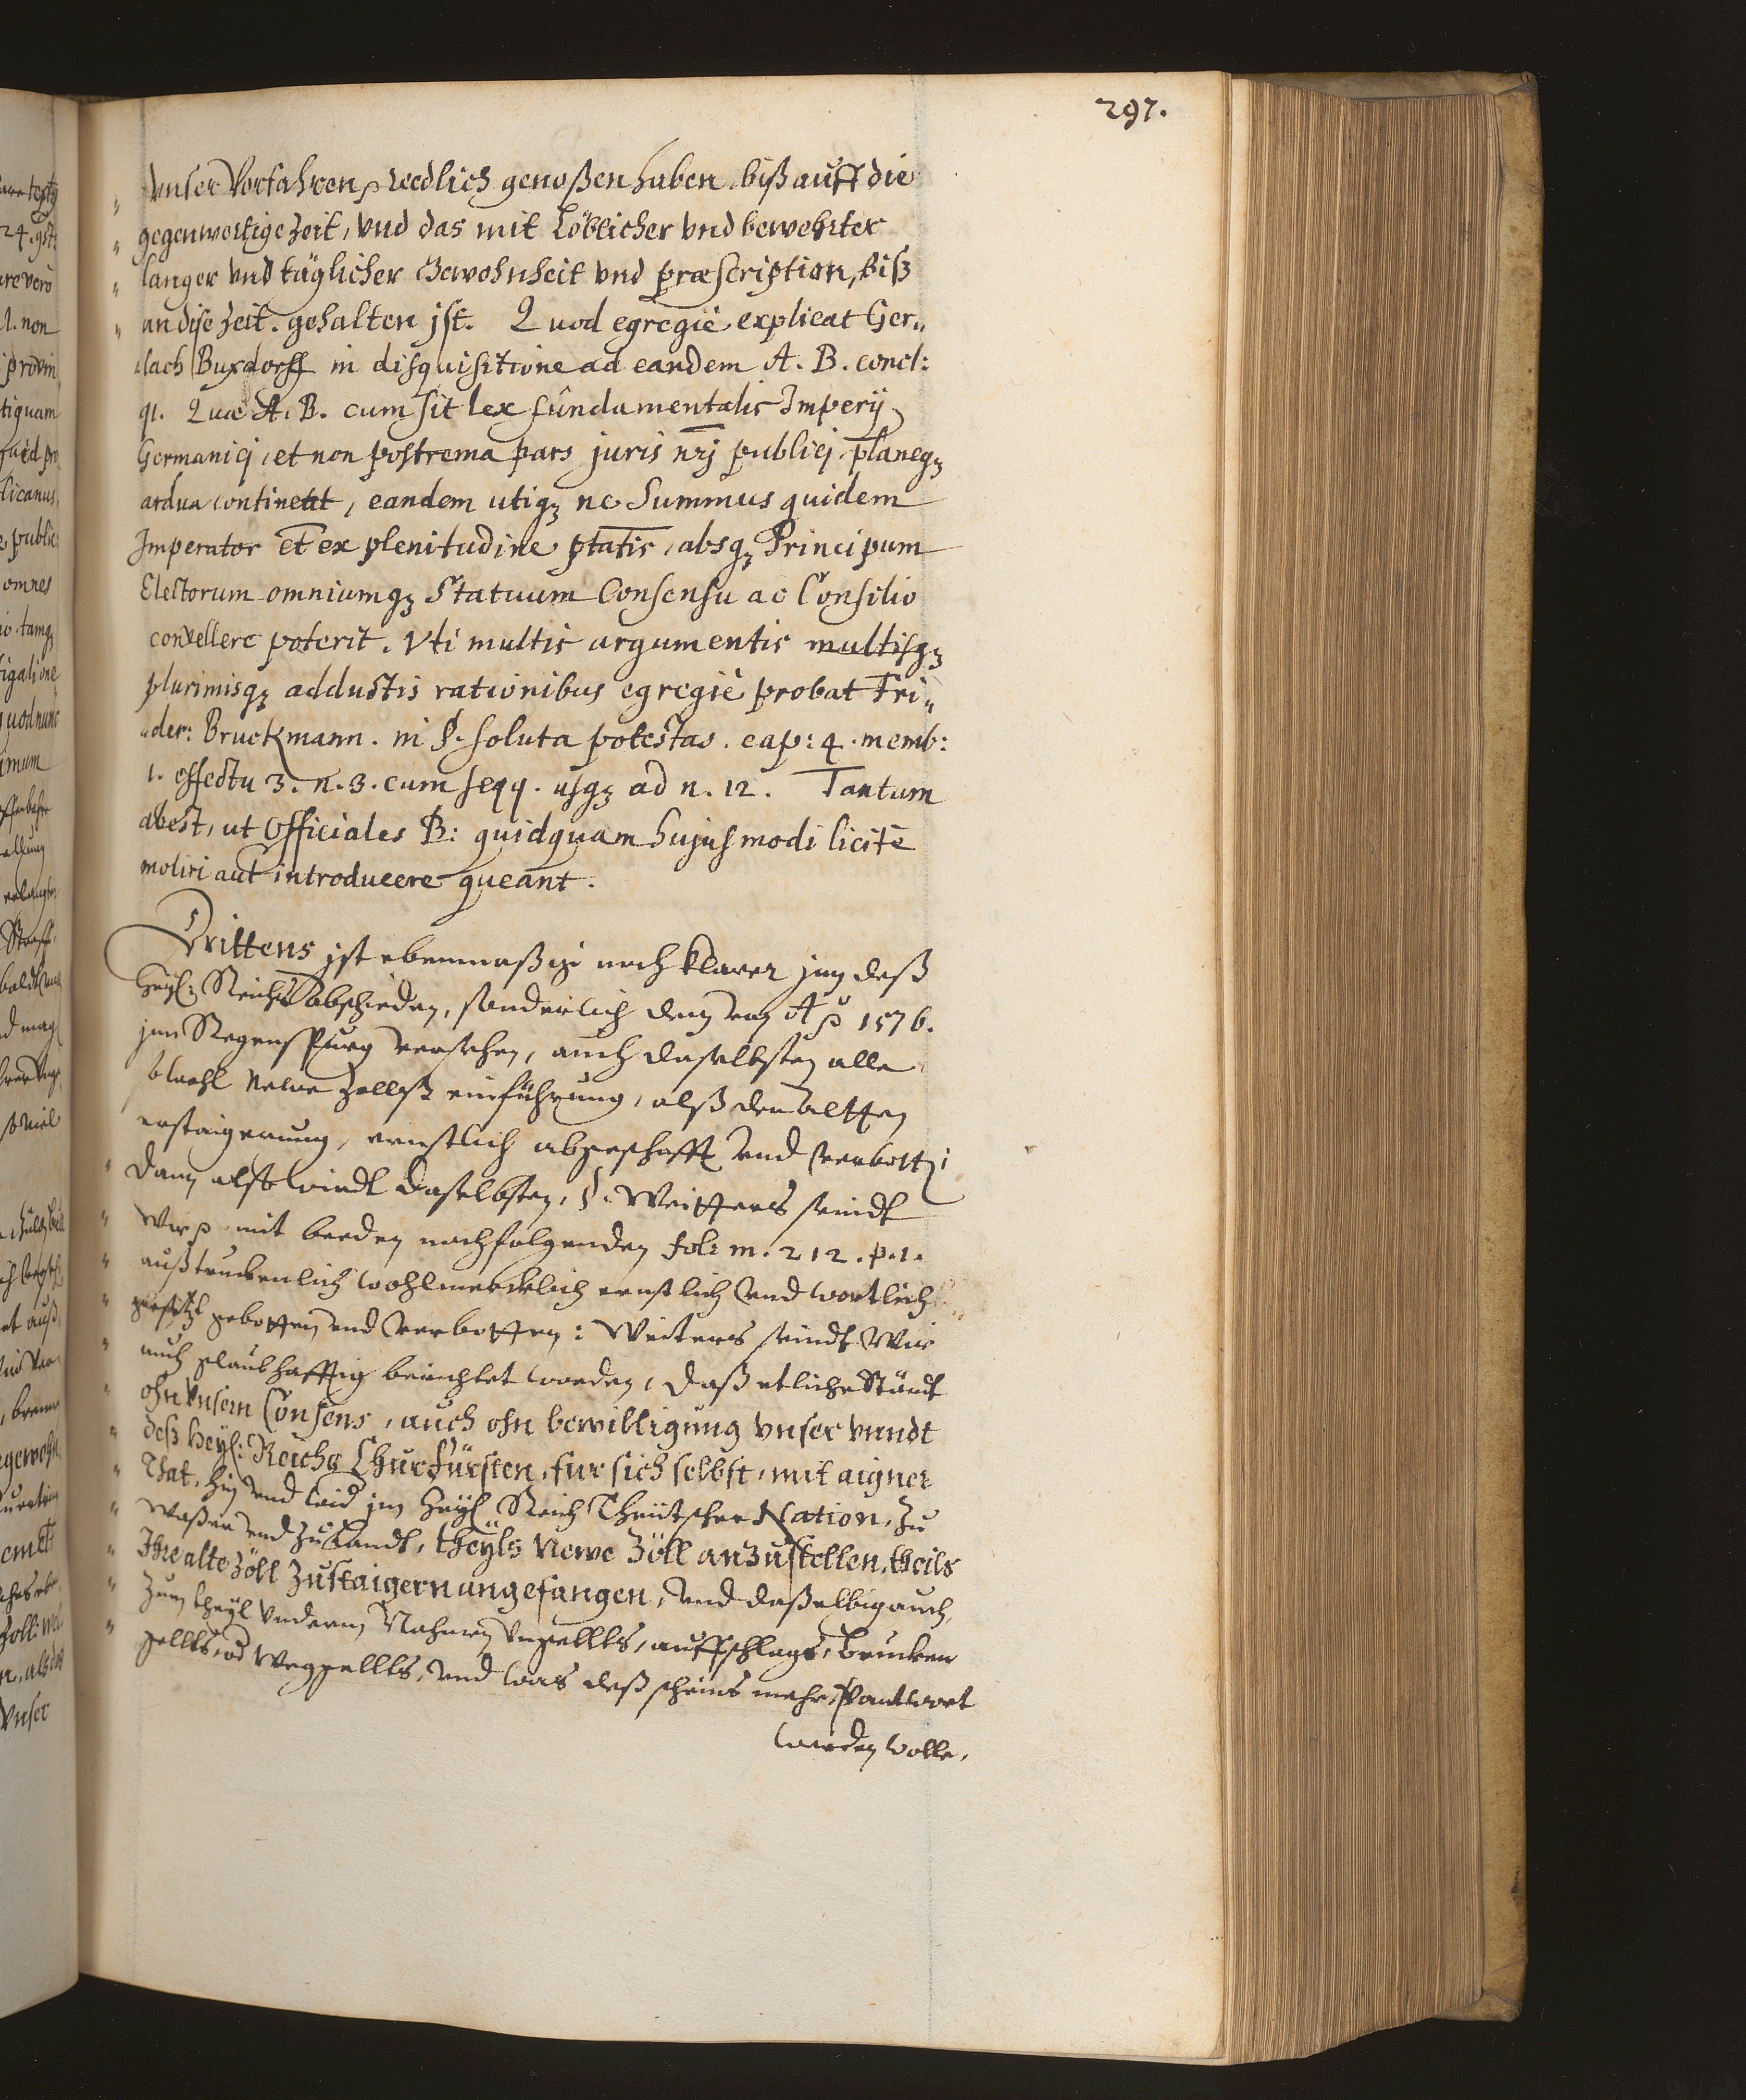 297.
unser Vorfahren, & redlich genoßen haben, biß auff die
gegenwertige Zeit, vnd das mit Löblicher vnd bewehrter
langer vnd täglicher Gewohnheit vnd præscription, biß
an dise Zeit. gehalten jst. Quod egregiè explicat Ger„
„lach Buxdorff in disquisitione ad eandem A. B. concl:
91. Quæ A. B. cum sit lex fundamentalis Imperij
Germanici, et non postrema pars juris nrj publici, planeqꝫ
ardua contineat, eandem utiqꝫ ne Summus quidem
Imperator et ex plenitudine ptatis, absqꝫ Principum
Electorum omniumqꝫ Statuum Consensu ac Consilio
convellere poterit. Vti multis argumentis multisqꝫ
plurimisqꝫ adductis rationibus egregiè probat Fri„
„der: Bruckmann. in §. soluta potestas. cap: 4. memb:
1. effectu 3. n. 3. cum seqq. usqꝫ ad n. 12. Tantum
abest, ut Officiales B: quidquam hujusmodi licitè
moliri aut introducere queant.
Drittens jst ebenmaßig noch klarer jnn deß
Heyl: Reichs abschieden, sonderlich dem von Aº 1576.
jnn Regenspurg versehen, auch daselbsten alle
so wohl newe Zollß einführung, alß der alten
erstaigerung, ernstlich abgeschafft vnd verbotten
dann also wirdt daselbsten, §. Weitters seindt
Wir & mit beeden nachfolgenden fol: m. 212. p. 1.
außtruckenlich wohlmercklich ernstlich vnd wortlich
gesetzt gebotten vnd verbotten: Weiters seindt Wir
auch glaubhafftig berichtet worden, daß etliche Ständt
ohn Vnsern Consens, auch ohn bewilligung vnser vnndt
deß Heyl: Reichs Churfürsten, für sich selbst, mit aigner
That, hin vnd wid jm Heyl Reich Theütscher Nation, zu
Waßer vnd zu Landt, theyls Newe Zöll anzustellen, theils
Ihre alte Zöll Zustaigern angefangen, vnd daßelbig auch,
zum theyl Vnderm Nahmen Vngellts, auffschlags, Brucken
gellts, od Weggellts, vnd was deß scheins mehr,
werden wolle.